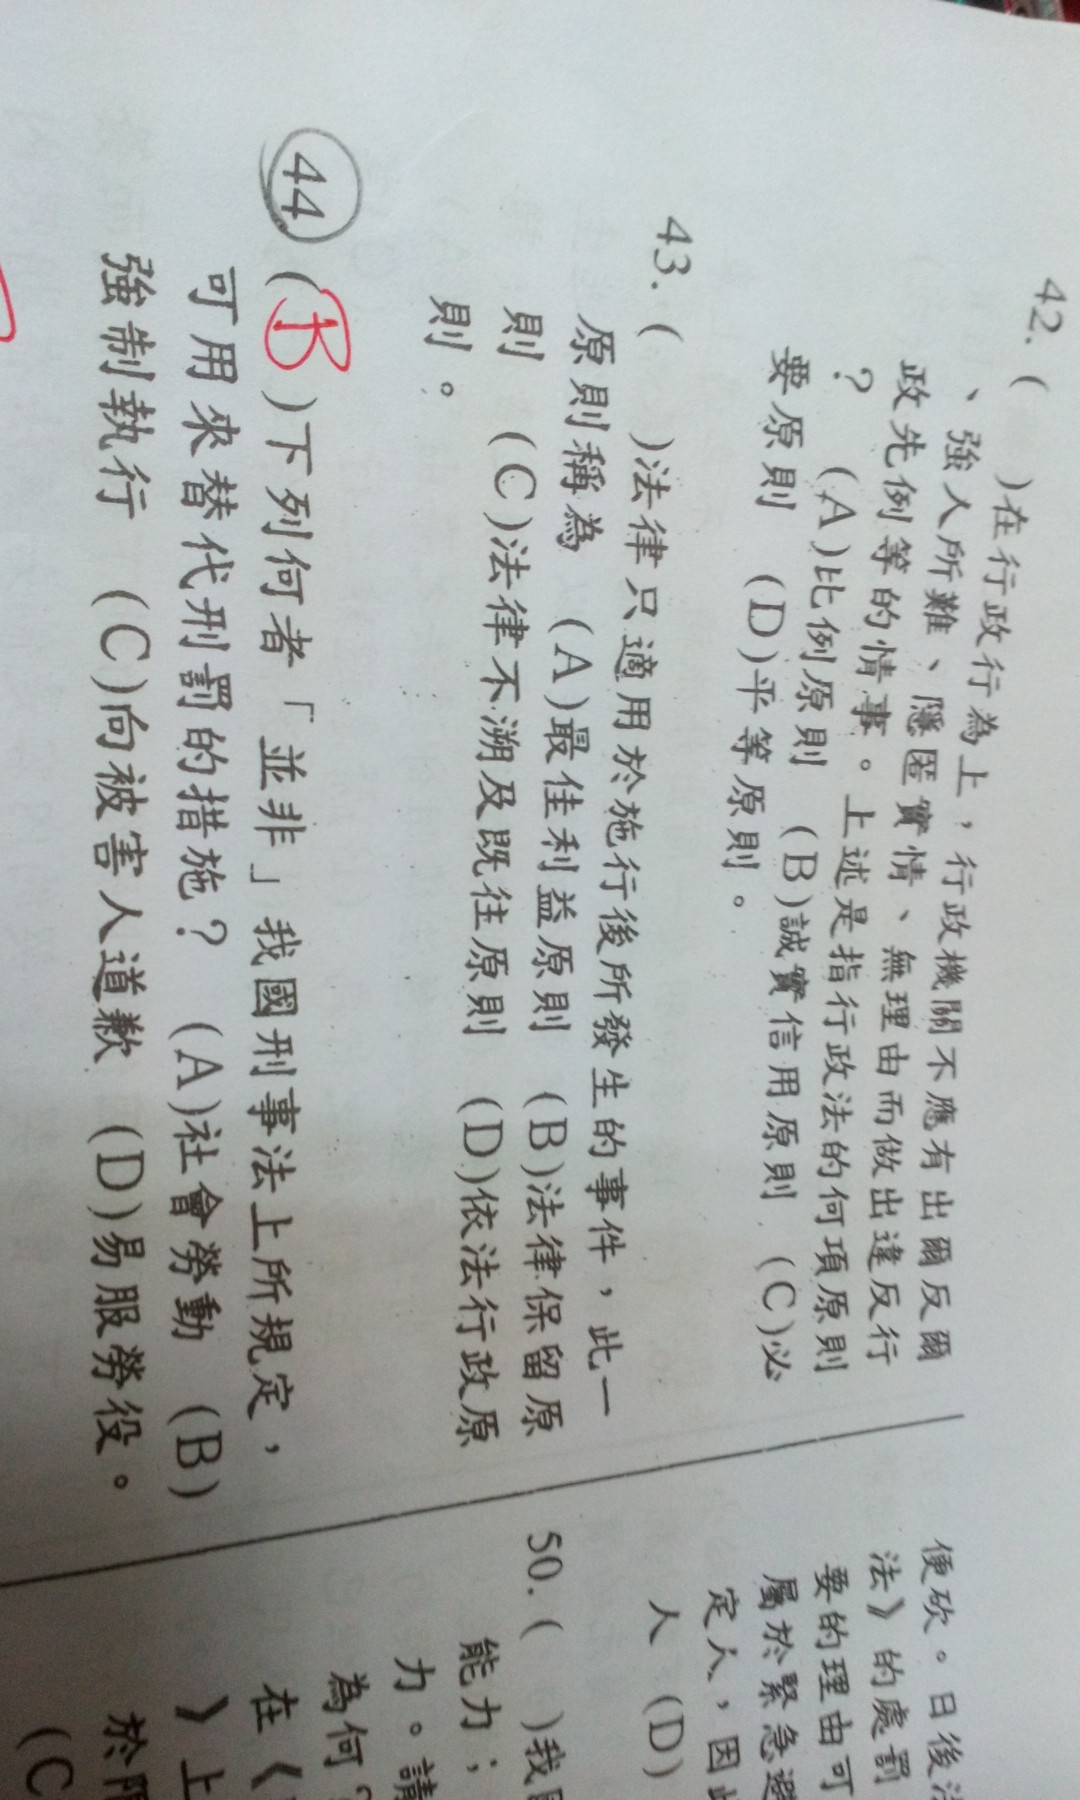 42. (　)在行政行為上，行政機關不應有出爾反爾
、強人所難、隱匿實情、無理由而做出違反行
政先例等的情事。上述是指行政法的何項原則
？ (A)比例原則 (B)誠實信用原則 (C)必
要原則 (D)平等原則。
43. (　)法律只適用於施行後所發生的事件，此一
原則稱為 (A)最佳利益原則 (B)法律保留原
則 (C)法律不溯及既往原則 (D)依法行政原
則。
44 (B)下列何者「並非」我國刑事法上所規定，
可用來替代刑罰的措施？ (A)社會勞動 (B)
強制執行 (C)向被害人道歉 (D)易服勞役。
便砍。日後
法》的處罰
要的理由可
屬於緊急避
定人，因此
人 (D)
50. (　)我
能力；
力。請
為何？
在《
》上
於
(C